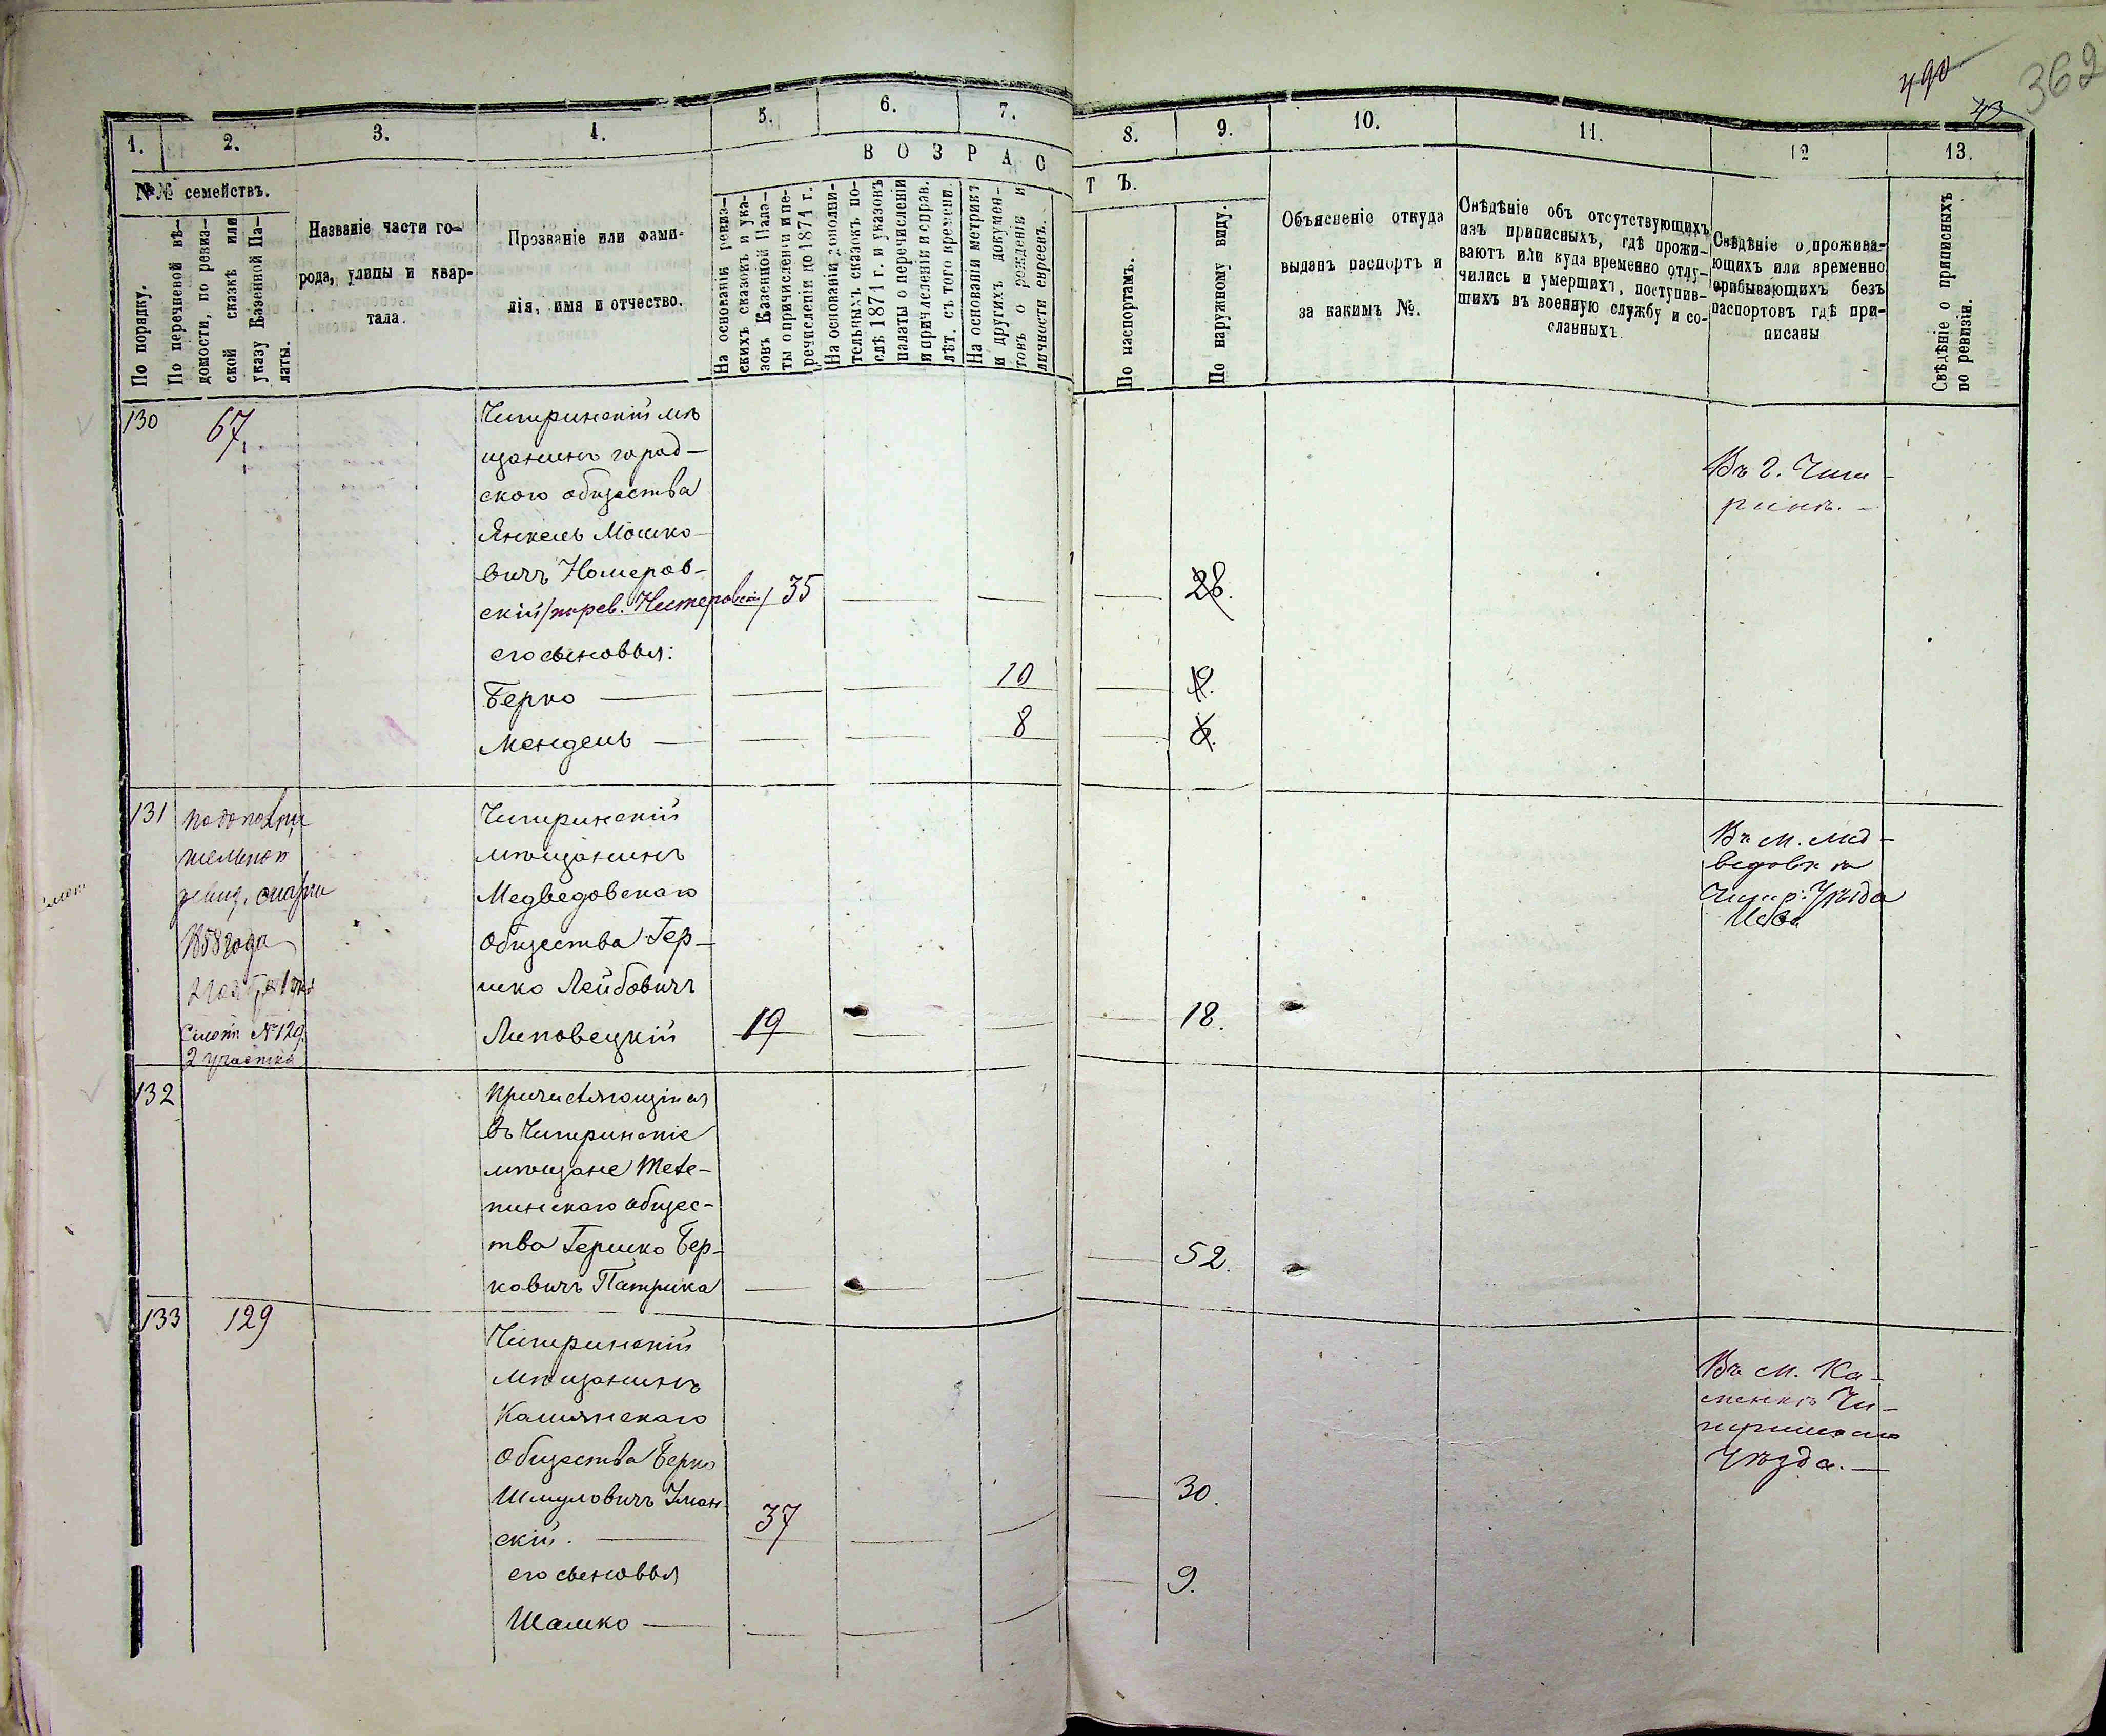 362
1.
2.
3.
4.
5.
6.
7.
8.
9.
10.
11.
12
13.
№№ семействъ.
В О З Р А С Т Ъ.
По порядку.
По перечневой вѣ-
домости, по ревиз-
ской сказкѣ или
указу Казенной Па-
латы.
Названіе части го-
рода, улицы и квар-
тала.
Прозваніе или фами-
лія, имя и отчество.
На основаніи ревиз-
скихъ сказокъ и ука-
зовъ Казенной Пала-
ты о причисленіи и пе-
речисленіи до 1871 г.
На основаніи дополни-
тельныхъ сказокъ по-
слѣ 1871 г. и указовъ
палаты о перечисленіи
и причисленіи и справ.
лѣт. съ того времени.
На основаніи метрикъ
и другихъ докумен-
товъ о рожденіи и
личности евреевъ.
По паспортамъ.
По наружному виду.
Объясненіе откуда
выданъ паспортъ и
за какимъ №.
Свѣдѣніе объ отсутствующихъ
изъ приписныхъ, гдѣ прожи-
ваютъ или куда временно отлу-
чились и умершихъ, поступив-
шихъ въ военную службу и со-
сланныхъ
Свѣдѣніе о прожива-
ющихъ или временно
прибывающихъ безъ
паспортовъ гдѣ при-
писаны
Свѣдѣніе о приписныхъ
по ревизіи.
130
67
Чигиринскій мѣ
щанинъ город-
ского общества
Янкель Мошко-
вичъ Номеров-
скій/по рев. Нестеровскій/ 35
28.
его сыновья:
Берко
10
Мендель
8
Въ г. Чиги-
ринѣ.
131
По дополни
тельной
ревиз. сказки
1858 года
Смот. №129.
2 участка
Чигиринскій
мѣщанинъ
Медведовскаго
Общества Гер-
шко Лейбовичъ
Липовецкій
19
18.
Въ м. Мед-
ведовкѣ
Чигир. Уѣзда
132
Причисляющійся
въ Чигиринскіе
мѣщане Теле-
пинскаго общес-
тва Гершко Бер-
ковичъ Патрика
52.
133
129
Чигиринскій
Мѣщанинъ
Камянскаго
Общества Берко
Шмуловичъ Уман-
скій.
37
30.
его сыновья
Шамко
9.
Въ м. Ка-
менкѣ Чи-
гиринскаго
Уѣзда.